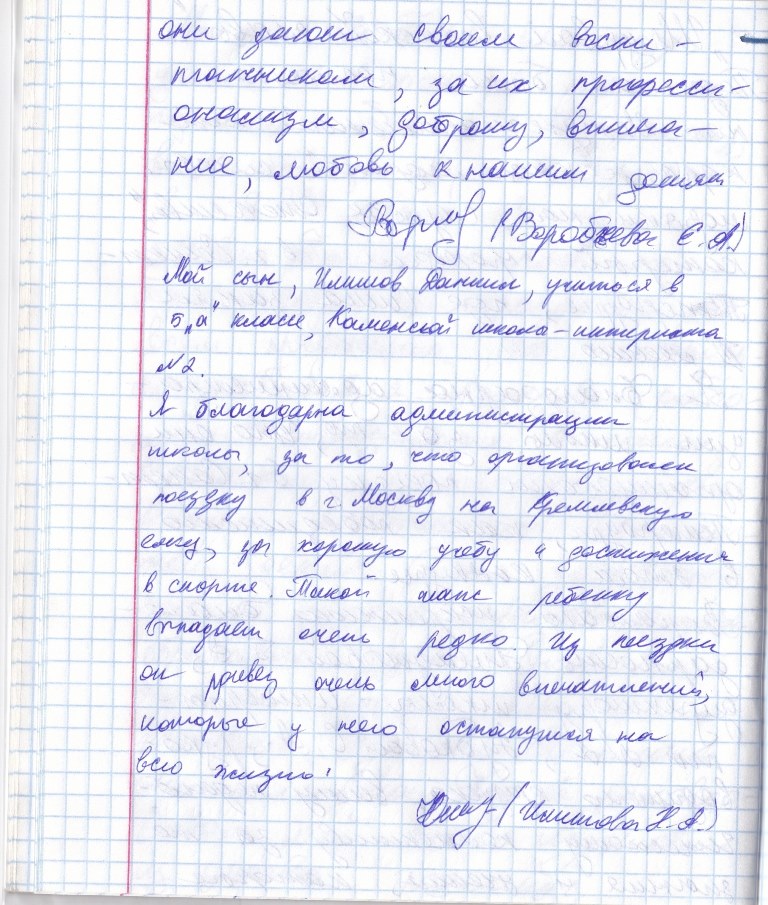 они дают своим воспи-
танникам, за их професси-
онализм, доброту, внима-
ние, любовь к нашим детям
(Воробьева Е.А.)
Мой сын, Илишов Даниил, учиться в
5 „а" классе, Каменской школа-интерната
№2.
Я благодарна администрации
школы, за то, что организовали
поездку в г. Москву на Кремлевскую
елку, за хорошую учебу и достижения
в спорте. Такой шанс ребенку
выпадает очень редко. Из поездки
он привез очень много впечатлений,
которые у него останутся на
всю жизнь!
(Илишова Н.А.)